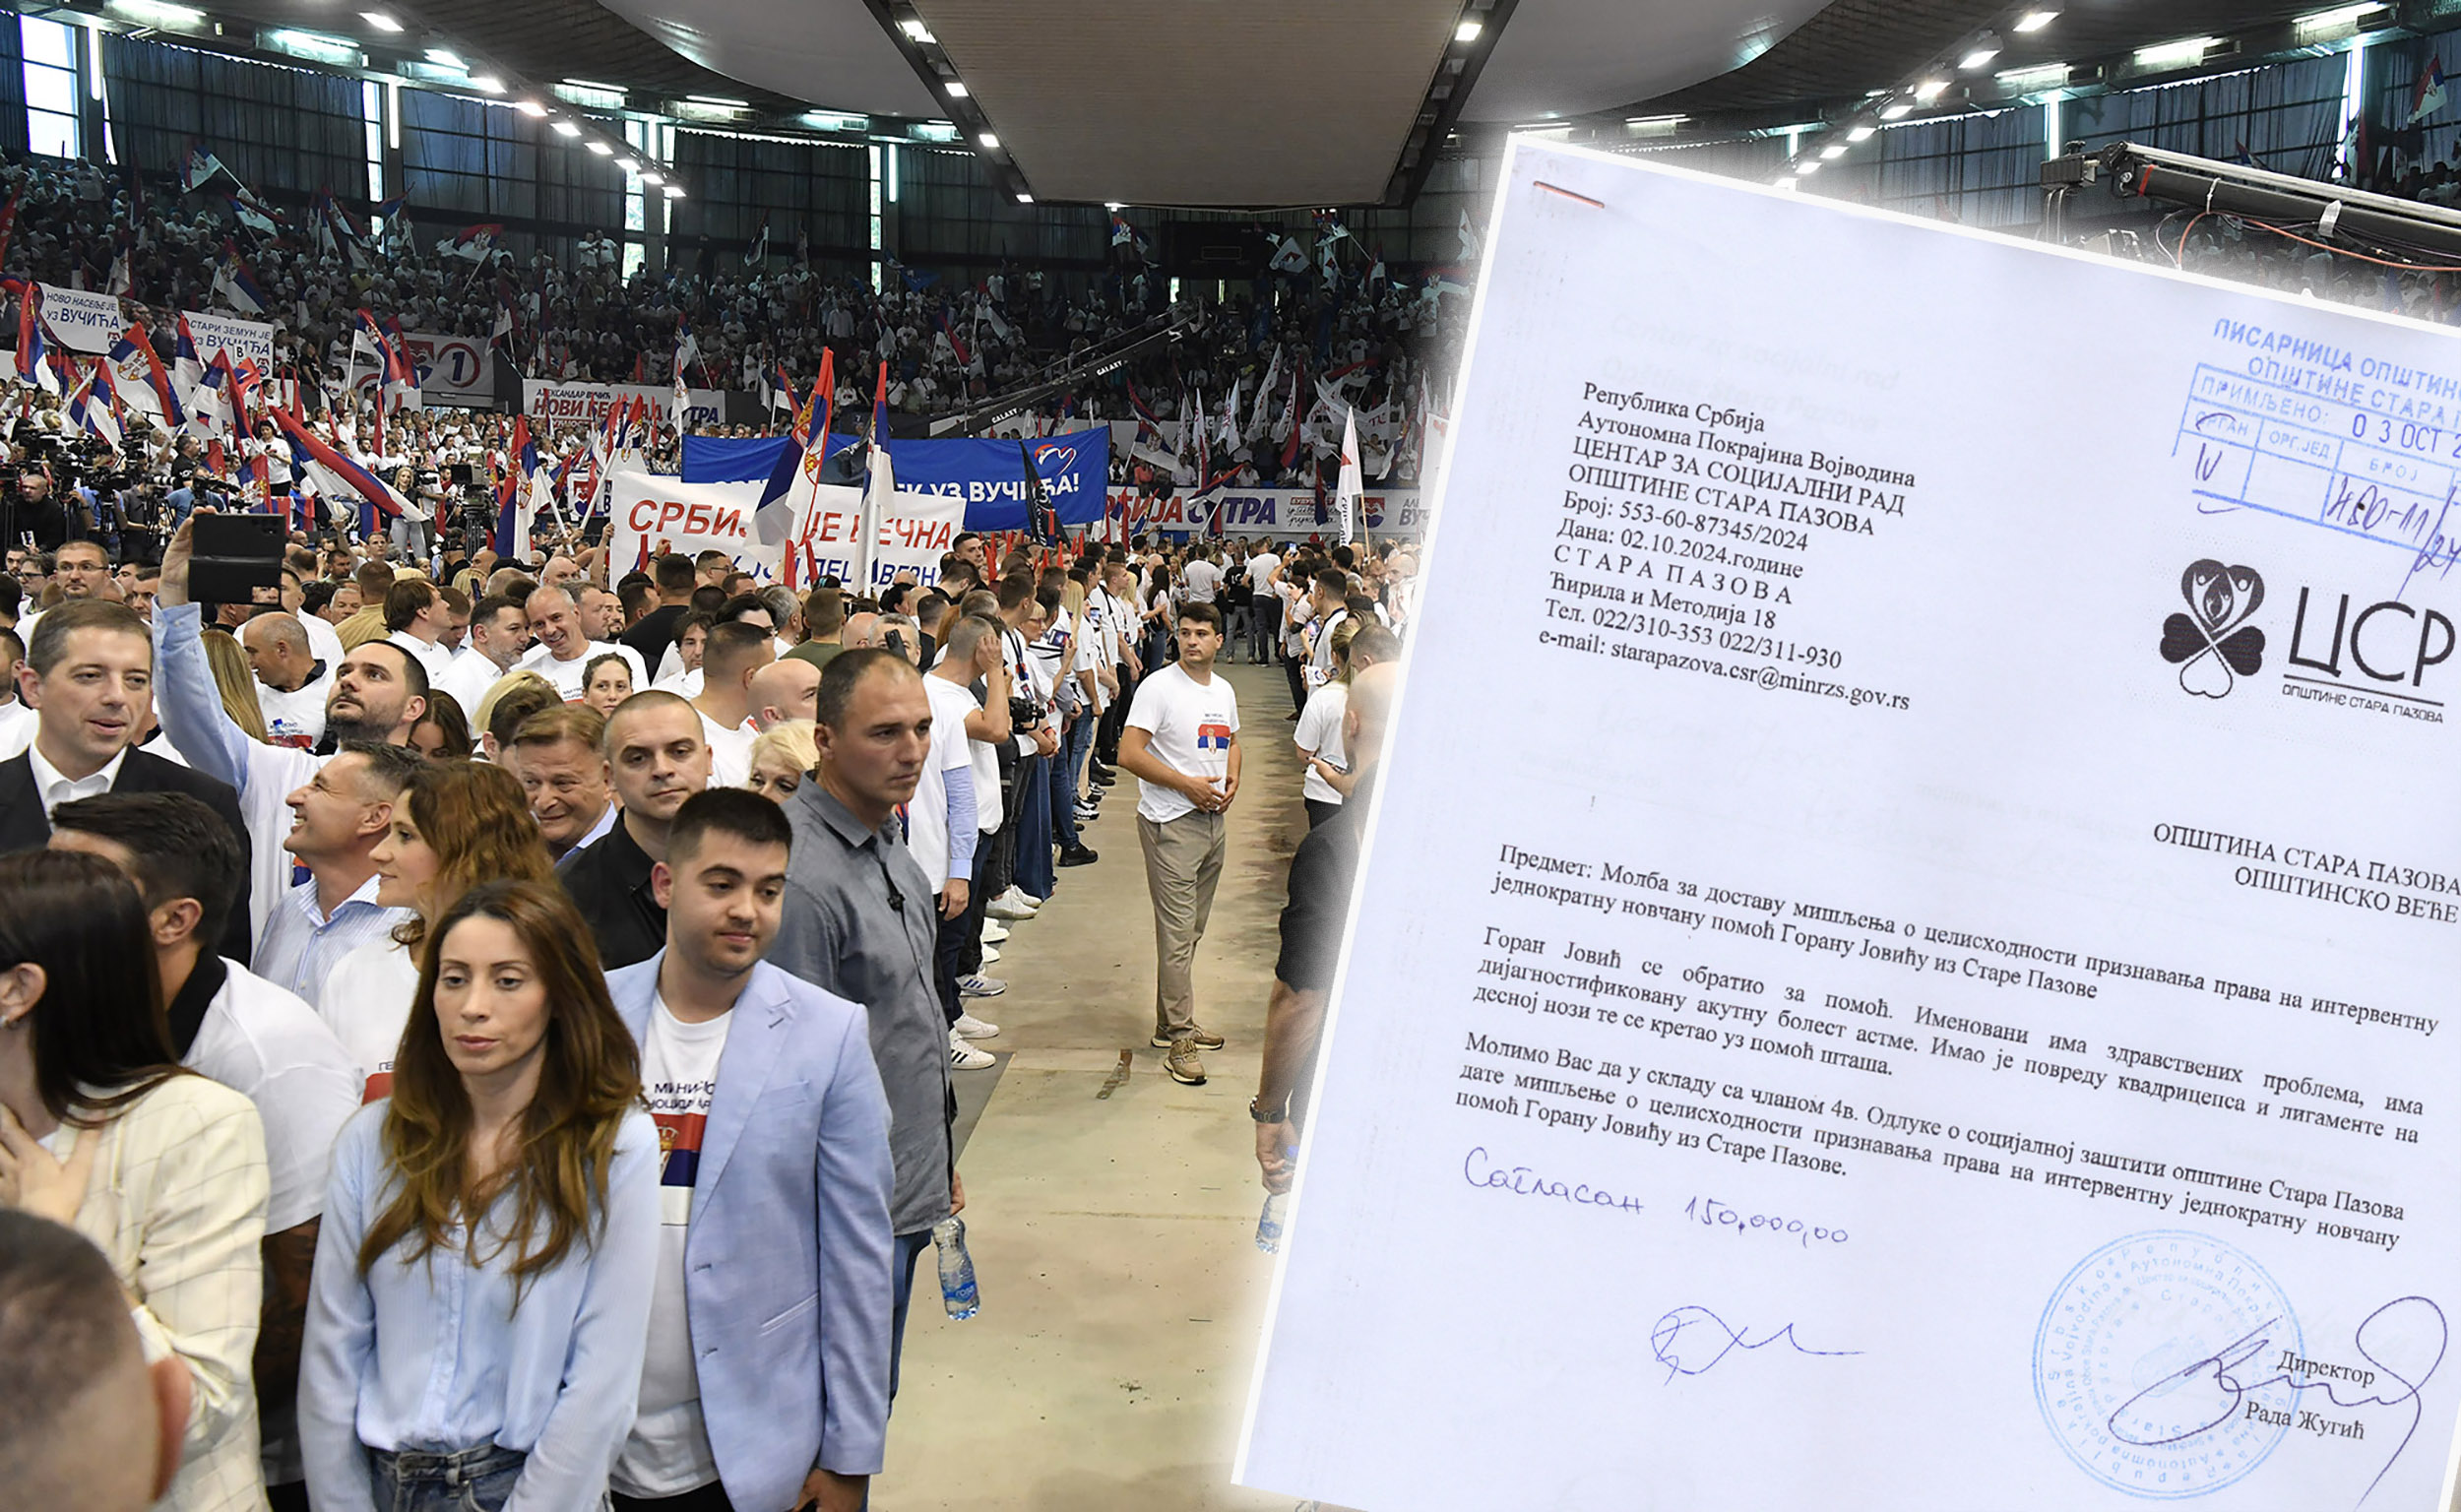 НОВО НАСЕЉЕ ЈЕ
УЗ ВУЧИЋА
СТАРИ ЗЕМУН ЈЕ
УЗ ВУЧИЋА
1
АЛЕКСАНДАР ВУЧИЋ
НОВИ
СУТРА
УЗ ВУЧИЋА!
ЈЕ ВЕЧНА
СУТРА
GALAXY
GALAXY
rosa
ПИСАРНИЦА
ОПШТИНЕ СТАРА
ПРИМЉЕНО: 03 ОСТ
ОРГАН ОРГ.ЈЕД БРОЈ
IV 480-11/24
Република Србија
Аутономна Покрајина Војводина
ЦЕНТАР ЗА СОЦИЈАЛНИ РАД
ОПШТИНЕ СТАРА ПАЗОВА
Број: 553-60-87345/2024
Дана: 02.10.2024.године
С Т А Р А П А З О В А
Ћирила и Методија 18
Тел. 022/310-353 022/311-930
e-mail: starapazova.csr@minrzs.gov.rs
ЦСР
ОПШТИНЕ СТАРА ПАЗОВА
ОПШТИНА СТАРА ПАЗОВА
ОПШТИНСКО ВЕЋЕ
Предмет: Молба за доставу мишљења о целисходности признавања права на интервентну
једнократну новчану помоћ Горану Јовићу из Старе Пазове
Горан Јовић се обратио за помоћ. Именовани има здравствених проблема, има
дијагностификовану акутну болест астме. Имао је повреду квадрицепса и лигаменте на
десној нози те се кретао уз помоћ шташа.
Молимо Вас да у складу са чланом 4в. Одлуке о социјалној заштити општине Стара Пазова
дате мишљење о целисходности признавања права на интервентну једнократну новчану
помоћ Горану Јовићу из Старе Пазове.
Сагласан 150,000,00
Директор
Рада Жугић